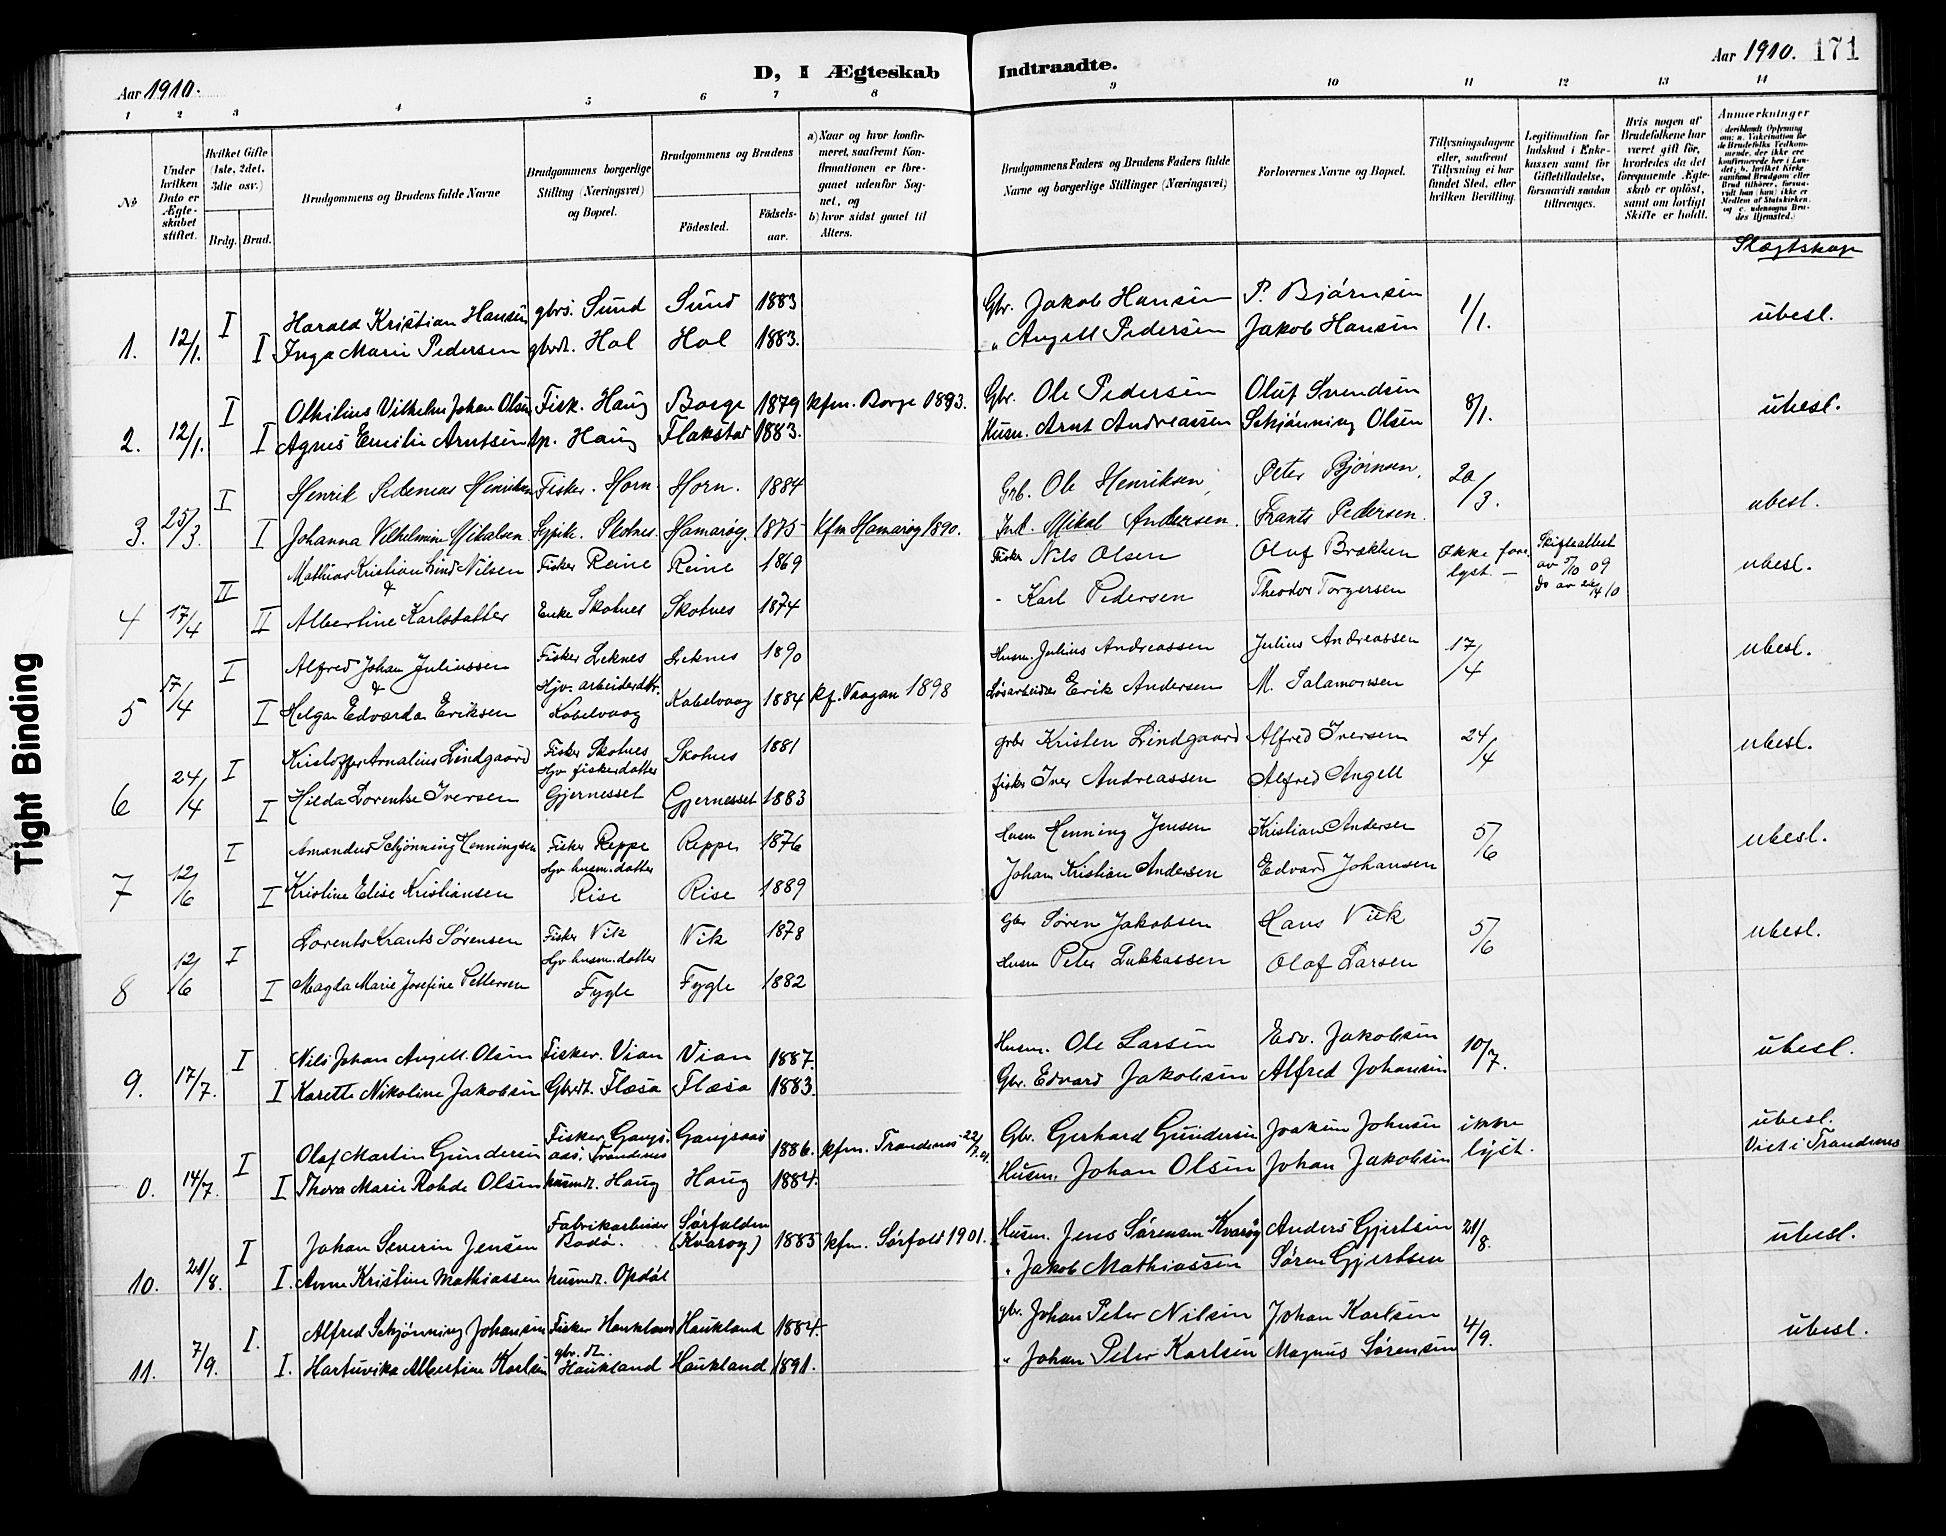 Aar 1910.
D, I Ægteskab Indtraadte.
Aar 1910. 171
1 2 3 4 5 6 7 8 9 10 11 12 13 14
No
Under hvilken Dato er Ægteskabet stiftet.
Hvilket Gifte (1ste, 2det, 3die osv.)
Brdg. Brud.
Brudgommens og Brudens fulde Navne
Brudgommens borgerlige Stilling (Næringsvei) og Bopæl.
Brudgommens og Brudens
Födested. Födselsaar.
a) Naar og hvor konfirmeret, saafremt Konfirmationen er foregaaet udenfor Sognet, og
b) hvor sidst gaaet til Alters.
Brudgommens Faders og Brudens Faders fulde Navne og borgerlige Stillinger (Næringsvei)
Forlovernes Navne og Bopæl.
Tillysningsdagene eller, saafremt Tillysning ei har fundet Sted, efter hvilken Bevilling.
Legitimation for Indskud i Enkekassen samt for Giftetilladelse, forsaavidt saadan tiltrænges.
Hvis nogen af Brudefolkene har været gift för, hvorledes da det foregaaende Ægteskab er oplöst, samt om lovligt Skifte er holdt.
Anmærkninger
Slægtskap
1. 12/1. I Harald Kristian Hansen gbrs. Sund Sund 1883 Gbr. Jakob Hansen P. Bjørnsen 1/1. ubesl.
I Inga Marie Pedersen gbrdt. Hol Hol 1883. " Angell Pedersen Jakob Hansen
2. 12/1. I Othilius Vilhelm Johan Olsen Fisk. Haug Borge 1879 kfm. Borge 1893. Gbr. Ole Pedersen Oluf Svendsen 8/1. ubesl.
I Agnes Emilie Arntsen tp. Haug Flakstad 1883. Husm. Arnt Andreassen Schjønning Olsen
3. 25/3. I Henrik Sedenius Henriksen Fisker. Horn. Horn. 1884 Grb. Ole Henriksen, Peter Bjørnsen, 20/3. ubesl.
I Johanna Vilhelmine Mikalsen Sypik. Skotnes Hamarøy. 1875 Kfm Hamarøy 1890. Ind. Mikal Andersen. Frants Pedersen.
4 17/4 II Mathias Kristian Lind Nilsen Fisker Reine Reine 1869 Fisker Nils Olsen Oluf Brækken Ikke fore lyst. — Skifteattest av 5/10 09 Do av 22/4 10 ubesl.
&
II Albertine Karlsdatter Enke Skotnes Skotnes 1874 - Karl Pedersen Theodor Torgersen
5 17/4 I Alfred Johan Juliussen Fisker Leknes Leknes 1890 Husm. Julius Andreassen Julius Andreassen 17/4 ubesl.
&
I Helga Edvarda Eriksen Hjv. arbeiderdtr. Kabelvaag Kabelvaag 1884 kf. Vaagan 1898 Løsarbeider Erik Andersen M. Salamonsen
6 24/4 I Kristoffer Arnalius Lindgaard Fisker Skotnes Skotnes 1881 grbr Kristen Lindgaard Alfred Iversen 24/4 ubesl.
I Hilda Lorentse Iversen Hjv fiskerdatter Gjernesset Gjernesset 1883 fisker Iver Andreassen Alfred Angell
7 12/6 I Amandus Schjønning Henningsen Fisker Reppe Reppe 1876 Husm Henning Jensen Kristian Andersen 5/6 ubesl.
I Kristine Elise Kristiansen Hjv husm.datter Rise Rise 1889 Johan Kristian Andersen Edvard Johansen
8 12/6 I Lorents Krants Sørensen Fisker Vik Vik 1878 Gbr Søren Jakobsen Hans Vik 5/6 ubesl.
I Magda Marie Josefine Pettersen Hjv husm.datter Fygle Fygle 1882 Husm Peter Lukkassen Olaf Larsen
9. 17/7. I Nils Johan Angell Olsen Fisker. Vian Vian 1887. Husm. Ole Larsen Edv. Jakobsen 10/7. ubesl.
I Karette Nikoline Jakobsen Gbrdt. Flæsa Flæsa 1883. Gbr. Edvard Jakobsen Alfred Johansen
0. 14/7. I Olaf Martin Gundersen Fisker. Gangsaas. Trondenes Gangsaas 1886. kfm. Trondenes 22/7.01. Gbr. Gerhard Gundersen Joakim Johnsen ikke lyst. ubesl. Viet i Trondenes
I Thora Marie Rohde Olsen husmdt. Haug Haug 1884. Husm. Johan Olsen Johan Jakobsen
10. 21/8. I Johan Severin Jensen Fabrikarbeider Bodø. Sørfolden (Kvarøy) 1885 kfm. Sørfold 1901. Husm. Jens Sørensen Kvarøy Anders Gjertsen 21/8. ubesl.
I. Anne Kristine Mathiassen husmdt. Opdøl " Jakob Mathiassen Søren Gjertsen
11. 7/9. I. Alfred Schjønning Johansen Fisker Haukland Haukland 1884. gbr. Johan Peter Nilsen Johan Karlsen 4/9. ubesl.
I. Hartuvika Albertine Karlsen gbr. dt. Haukland Haukland 1891. " Johan Peter Karlsen Magnus Sørensen
Tight Binding